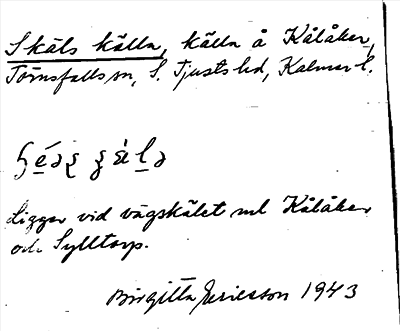 Skäls källa, källa å Kålåker,
Törnsfalls sn, S. Tjusts hd, Kalmar l.
Ligger vid vägskälet ml Kålåker
och Sylltorp.
Birgitta Ericsson 1943